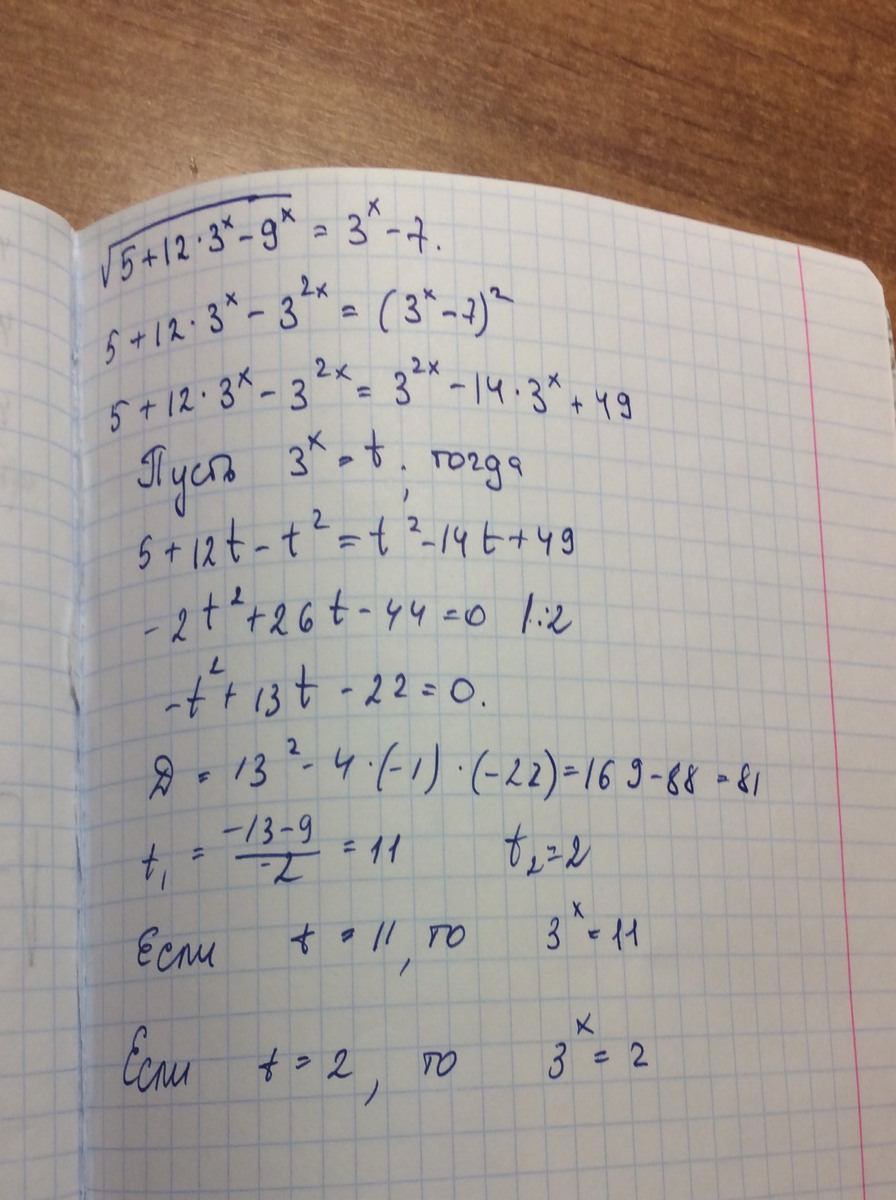 √5+12·3ˣ-9ˣ = 3ˣ-7.
5+12·3ˣ-3²ˣ = (3ˣ-7)²
5+12·3ˣ-3²ˣ = 3²ˣ-14·3ˣ+49
Пусть 3ˣ = t; тогда
5+12t-t² = t²-14t+49
-2t²+26t-44=0 |:2
-t²+13t-22=0.
D = 13²-4·(-1)·(-22)=169-88=81
t₁ = (-13-9)/-2 = 11 t₂=2
Если t = 11, то 3ˣ = 11
Если t = 2, то 3ˣ = 2